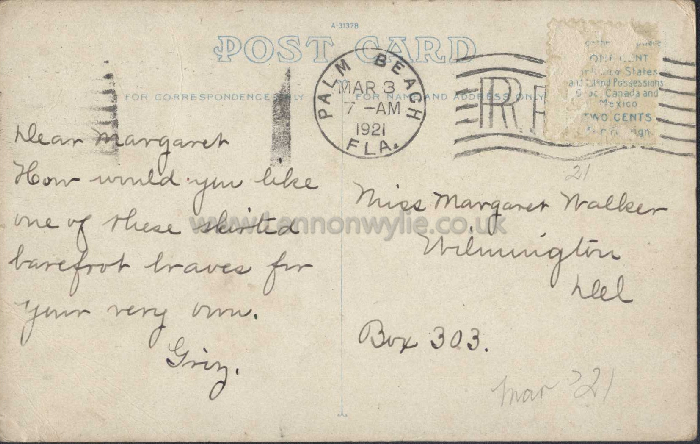 A-31328
POST CARD
FOR CORRESPONDENCE ONLY
FOR NAME AND ADDRESS ONLY
PALM BEACH
MAR 3
7 -AM
1921
FLA.
States
and Island Possessions
Canada and
Mexico
TWO CENTS
21
Dear Margaret
How would you like
one of these skirted
barefoot braves for
your very own.
Miss Margaret Walker
Wilmington
Del
Box 303.
Mar 3 21
www.tennonwylie.co.uk